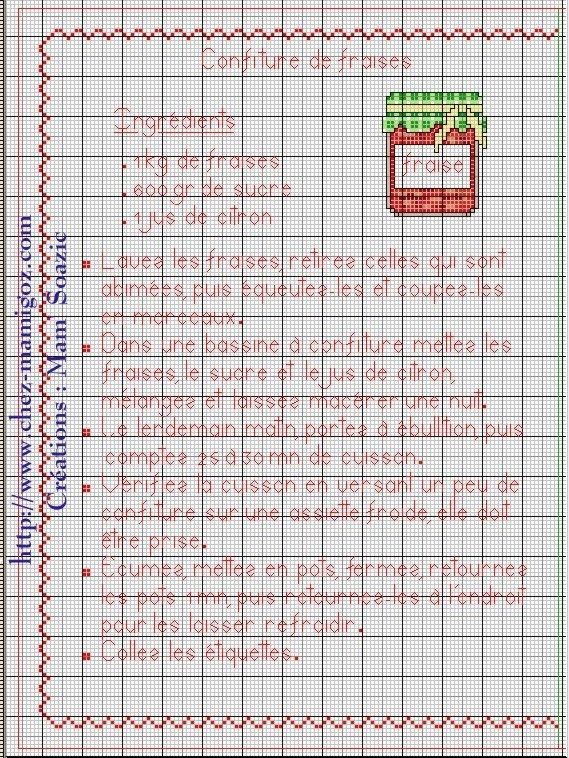 Confiture de fraises
Ingrédients
. 1 kg de fraises
. 600 gr de sucre
. 1 jus de citron
fraise
Lavez les fraises, retirez celles qui sont
abimées, puis équeutez-les et coupez-les
en morceaux.
Dans une bassine à confiture mettez les
fraises, le sucre et le jus de citron,
mélangez et laissez macérer une nuit.
Le lendemain matin, portez à ébullition, puis
comptez 25 à 30 mn de cuisson.
Vérifiez la cuisson en versant un peu de
confiture sur une assiette froide, elle doit
être prise.
Écumez, mettez en pots, fermez, retournez
les pots 1 mn, puis retournez-les à l'endroit
pour les laisser refroidir.
Collez les étiquettes.
http://www.chez-mamigoz.com
Créations : Mam Soazic